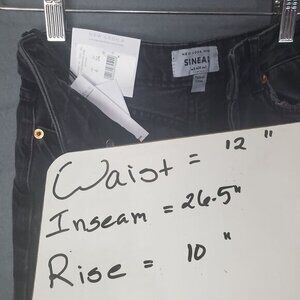 NEW LOOK
SINEAD
Waist = 12 "
Inseam = 26.5"
Rise = 10 "